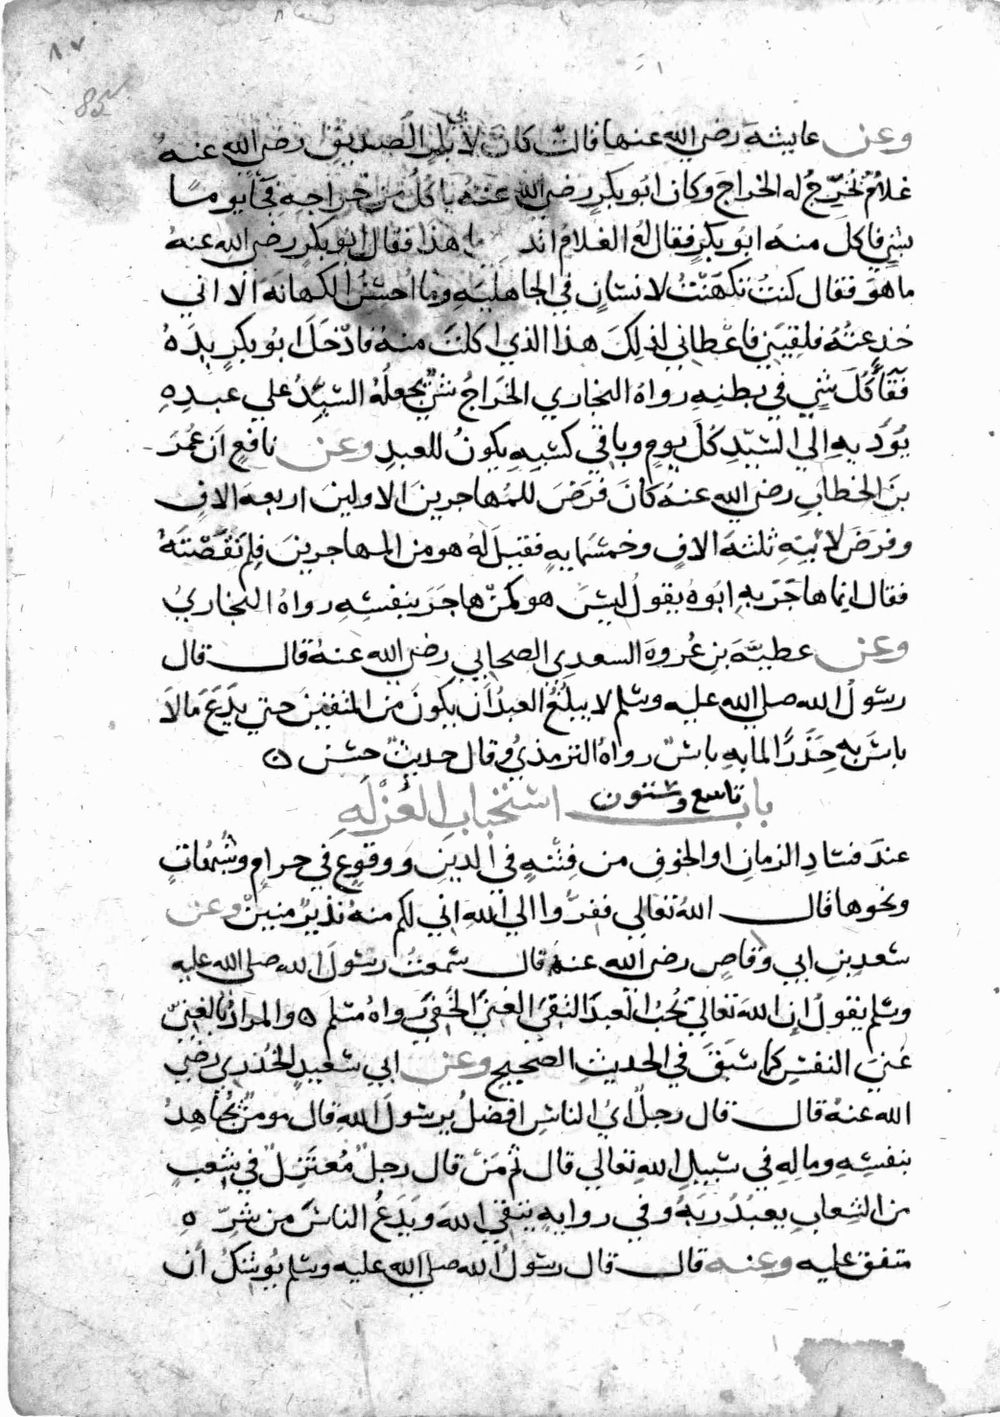 ٨٧
85
وعن عايشة رضي الله عنها قالت كان لابي بكر الصديق رضي الله عنه
غلامٌ يُخَرِّجُ له الخراجَ وكان ابو بكرٍ رضي الله عنهُ ياكلُ من خراجِهِ فجَآ يومًا
بشيٍ فاكلَ منه ابو بكرٍ فقال لهُ الغلامُ اتد ما هذا فقال ابو بكرٍ رضي الله عنه
ما هوَ فقال كنتُ تكهَّنْتُ لانسانٍ في الجاهليَّهِ وما اُحْسِنُ الكهانه الا اني
خدعتُهُ فلقيَني فاعطاني لذلِكَ هذا الذي اكلتَ منهُ فادْخَلَ ابو بكرٍ يدَهُ
فَقَآ كُلَّ شيٍ في بطنِهِ رواهُ البخاري الخَراجُ شيٌ يجعلُهُ السَّيِّدُ علي عبدِهِ
يُوَدّيهِ الي السَّيّدِ كلَّ يومٍ وباقي كسْبِهِ يكونُ للعبدِ وعن نافعٍ ان عُمَرَ
بنَ الخطابِ رضي الله عنهُ كانَ فَرَضَ للمُهاجرينَ الاولين اربعه الافٍ
وفَرَضَ لابنِهِ ثلثهَ الافٍ وخمسَمايهٍ فقيلَ لَهُ هو من المهاجرينَ فلِمَ نقَصْتَهُ
فقال انما هاجَرَ بهِ ابُوهُ يقولُ ليسَ هو كمنْ هاجَرَ بنفسِهِ رواهُ البخاريُ
وعن عطيَّهَ بنِ عُروهَ السعدي الصحابي رضي الله عنهُ قال قال
رسولُ الله صلي الله عليه وسلم لا يبلُغُ العبدُ أن يكونَ من المتقينَ حتي يدَعَ مالا
باسَ بهِ حَذَرًا لما بهِ باسٌ رواهُ الترمذيُّ وقال حديثٌ حسَن ٥
باب تاسع وستون استحبابِ العُزْلَهِ
عندَ فسَادِ الزمانِ او الخوفِ من فِتْنهٍ في الدينِ ووقوعٍ في حرامٍ وشُبُهاتٍ
ونحوها قال اللهُ تعالي ففِرُّوا الي اللهِ اني لكم منهُ نذيرٌ مبينٌ وعن
سَعدِ بنِ ابي وقاصٍ رضي الله عنهُ قال سَمعتُ رسُولَ الله صلي الله عليه
وسَلم يقولُ اِن اللهَ تعَالي يحُبُّ العبدَ التَّقيَّ الغنيَّ الخَفيَّ رواهُ مسْلم ٥ والمرادُ بالغنيِّ
غنيُّ النفسِ كما سَبَقَ في الحديثِ الصحيحِ وعن ابي سَعيدٍ الخُدري رضي
الله عنهُ قال قال رجلٌ ايُّ الناسِ افضلُ يرسُولَ اللهِ قال مومنٌ يُجَاهِدُ
بنفسِهِ ومالِهِ في سَبيلِ اللهِ تعالي قال ثم مَنْ قال رجلٌ مُعتَزلٌ في شِعبٍ
من الشعابِ يعبدُ ربَّهُ وفي روايهٍ يتَّقي اللهَ ويَدَعُ الناسَ من شَرِّهِ ٥
متفق عليه وعنه قال قال رسُولُ الله صلي الله عليه وسَلم يُوشكُ أن